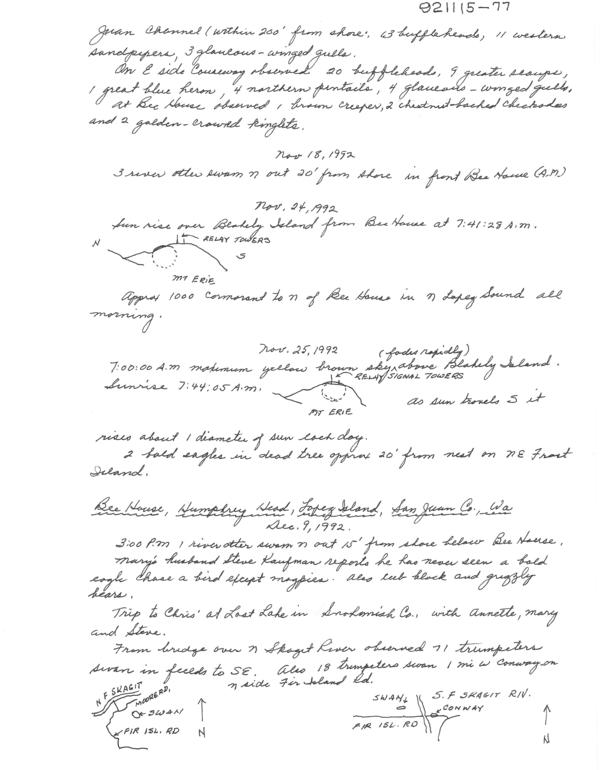 921115-77
Juan Channel (within 200' from shore: 63 buffleheads, 11 western
sandpipers, 3 glaucous-winged gulls.
On E side Causeway observed 20 bufflehead, 9 greater scaups,
1 great blue heron, 4 northern pintails, 4 glaucous-winged gulls.
At Bee House observed 1 brown creeper, 2 chestnut-backed chickadees
and 2 golden-crowned kinglets.
Nov 18, 1992
3 river otter swam N out 20' from shore in front Bee House (A.M.)
Nov. 24, 1992
Sun rise over Blakely Island from Bee House at 7:41:28 A.m.
RELAY TOWERS
N
S
MT ERIE
Approx 1000 Cormorant to N of Bee House in N Lopez Sound all
morning.
Nov. 25, 1992 (fades rapidly)
7:00:00 A.m maximum yellow brown sky above Blakely Island.
RELAY/SIGNAL TOWERS
Sunrise 7:44:05 A.m.
as sun travels S it
MT ERIE
rises about 1 diameter of sun each day.
2 bald eagles in dead tree approx 20' from nest on NE Frost
Island.
Bee House, Humphrey Head, Lopez Island, San Juan Co., Wa
Dec. 9, 1992.
3:00 P.m 1 river otter swam N out 15' from shore below Bee House.
Mary's husband Steve Kaufman reports he has never seen a bald
eagle chase a bird except magpies. Also cub black and grizzly
bears.
Trip to Chris' at Lost Lake in Snohomish Co., with Annette, Mary
and Steve.
From bridge over N Skagit River observed 71 trumpeters
swan in fields to SE. Also 18 trumpeters swan 1 mi W Conway on
N side Fir Island Rd.
N F. SKAGIT
MOORE RD.
SWAN
FIR ISL. RD
N
SWANS
S. F SKAGIT RIV.
CONWAY
FIR ISL. RD
N